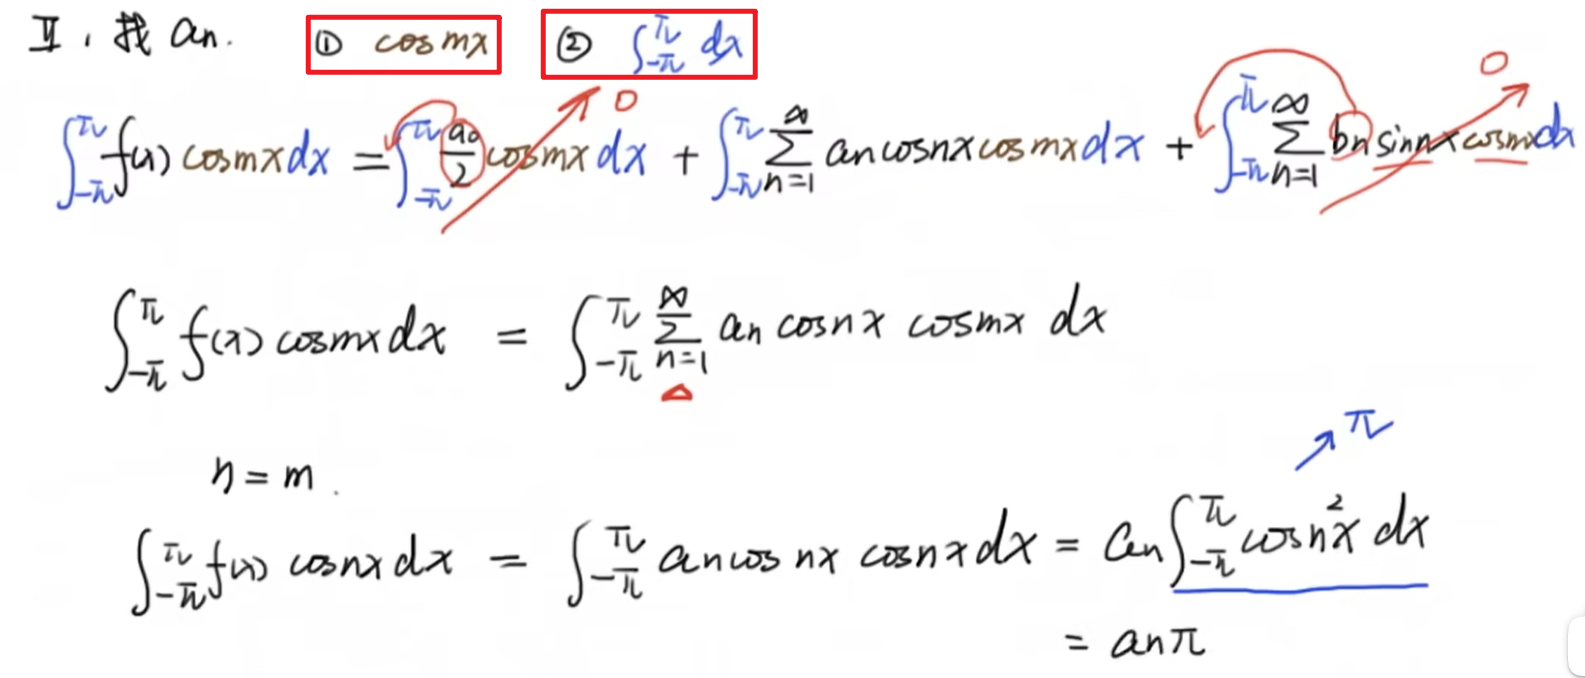 Ⅱ. 找 an. ① cosmx ② ∫_{-π}^{π} dx
∫_{-π}^{π} f(x) cosmx dx = ∫_{-π}^{π} a₀/2 cosmx dx + ∫_{-π}^{π} ∑_{n=1}^{∞} an cosnx cosmx dx + ∫_{-π}^{π} ∑_{n=1}^{∞} bn sinnx cosmx dx
0
0
∫_{-π}^{π} f(x) cosmx dx = ∫_{-π}^{π} ∑_{n=1}^{∞} an cosnx cosmx dx
n = m.
π
∫_{-π}^{π} f(x) cosnx dx = ∫_{-π}^{π} an cos nx cosnx dx = an ∫_{-π}^{π} cos²nx dx
= anπ